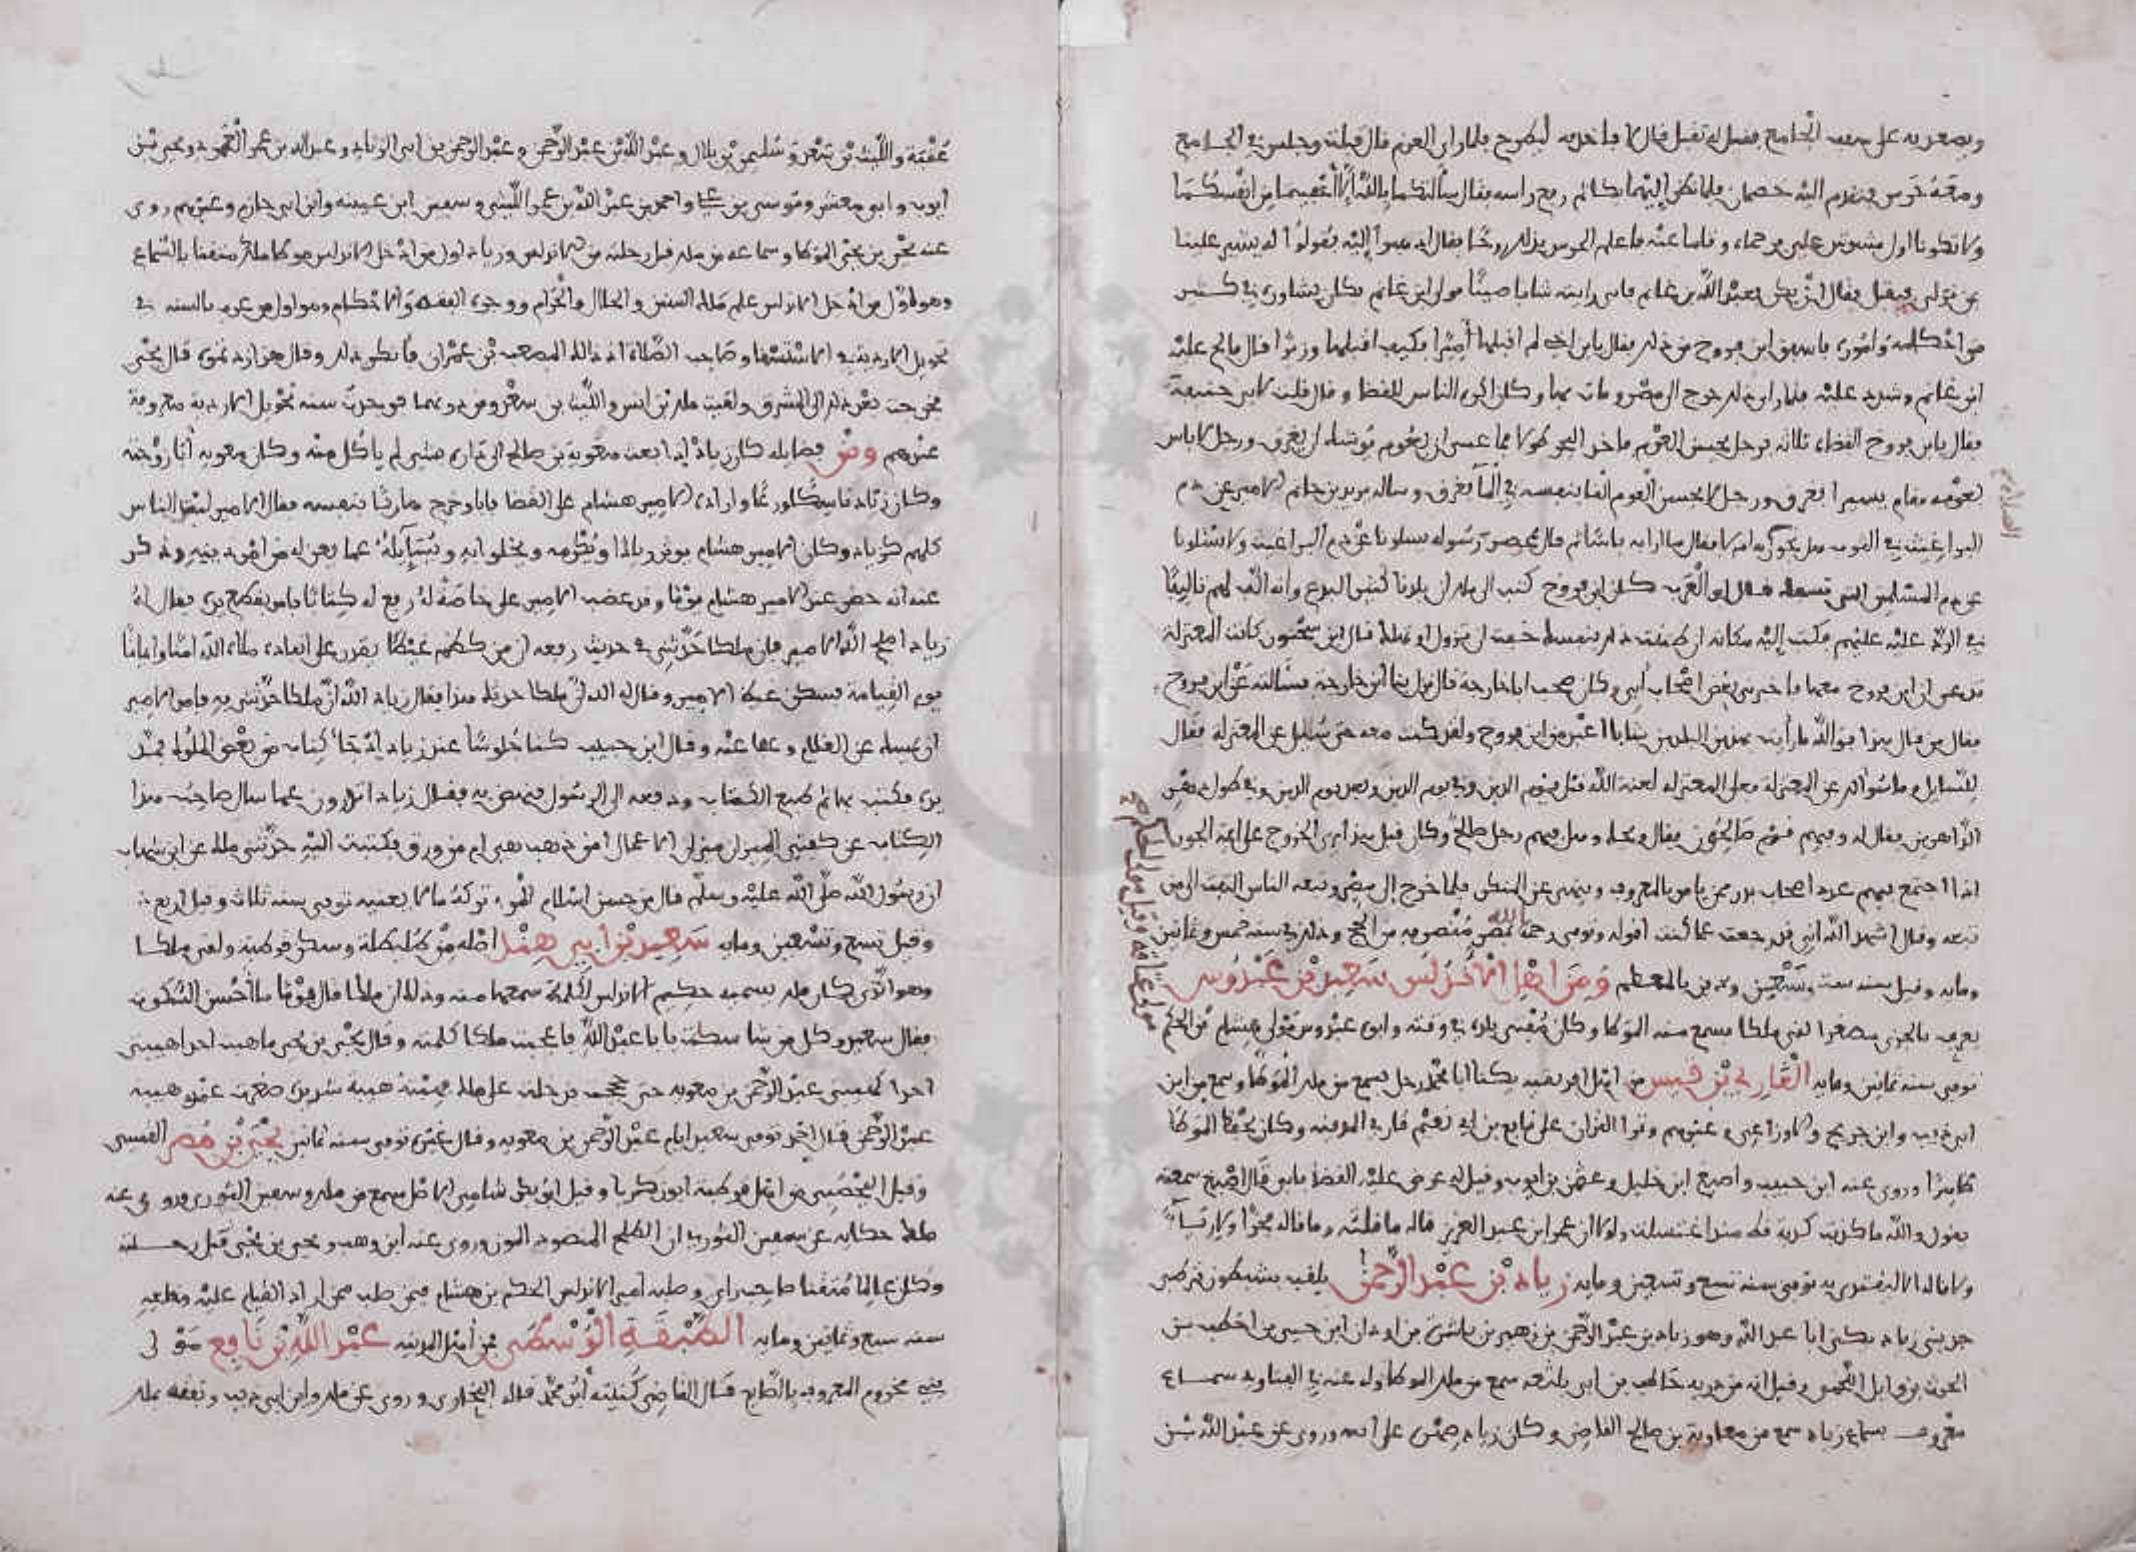 ويصعد به على سقف الجامع فقيل له تقبل فقال لا فأخذ به ليطرح فلما رأى العزم قال قبلت وجلس في الجامع
ومعه حرس فتقدم اليه خصمان فلما نظر إليهما بكا ثم رفع راسه فقال سألتكما بالله إلا أعفيتماني من انفسكما
ولا تكونا اول مشئومين علي فرحماه وقاما عنه فاعلم الحرس بذلك روحا فقال اذهبوا إليه فقولوا له يشير علينا
من نولي او يقبل فقال ان يكن فعبد الله بن غانم فاني رايته شابا صينا فولى ابن غانم فكان يشاوره في كثير
من احكامه واموره فاشفق ابن فروخ من ذلك فقال يابن اخي لم اقبلها أميرا فكيف اقبلها وزيرا فالح عليه
ابن غانم وشدد عليه فلما راى ذلك خرج الى مصر ومات بها وكان اكره الناس للقضا وقال قلت لابي حنيفة
فقال يابن فروخ القضاة ثلاثة فرجل يحسن العوم فاخذ البحر طولا فما عسى ان يعوم يوشك ان يغرق ورجل لا باس
بعومه فعام يسيرا فغرق ورجل لا يحسن العوم القا بنفسه في الما فغرق وساله يزيد بن حاتم الامير عن دم
البراغيث في الثوب
عن دم المسلمين التي تسفك قال ابو العرب كان ابن فروخ كتب الى مالك ان بلدنا كثير البدع وانه الف لهم تاليفا
في الرد عليه عليهم فكتب إليه مكانه ان ظننت ذلك بنفسك خفت ان تزول او تهلك قال ابن سحنون كانت المعتزلة
تدعي ان ابن فروخ معها فاخبرني بعض اصحاب أبي وكان صحب ابا خارجة
فقال من قال هذا فوالله ما رأيت
للسايل وما سوالك عن المعتزلة فعلى المعتزلة لعنة الله قبل يوم الدين وفي يوم الدين وبعد يوم الدين وفي طول دهر
الداهرين فقال له وفيهم قوم صالحون فقال ويحك وهل فيهم رجل صالح وكان قبل يرى الخروج على ايمة الجور
اذا اجتمع فيهم عدد اصحاب بدر ممن يامر بالمعروف وينهى عن المنكر فلما خرج إلى مصر وتبعه الناس التفت الى من
تبعه وقال اشهد الله اني قد رجعت عما كنت اقوله وتوفي رحمه الله بمصر منصرفه من الحج وذلك في سنة خمس وثمانين
ومايه وقيل سنة ست وسبعين ودفن بالمعظم ومن اهل الاندلس سعيد بن عبدوس
يعرف بالجدي مصغرا لقي مالكا فسمع منه الموطا وكان مفتي بلده في وقته وابوه عبدوس مولى هشام بن الحكم
توفي سنة ثمانين ومايه الغازي بن قيس من اهل افريقية يكنا ابا محمد رحل فسمع من مالك الموطا وسمع من ابن
ابي ذيب وابن جريج والاوزاعي وغيرهم وقرا القران على نافع بن ابي نعيم قاري المدينة وكان يحفظ الموطا
ظاهرا وروى عنه ابن حبيب واصبغ ابن خليل وعثمن بن ايوب وقيل له عرض عليه القضا فابى قال اصبغ سمعته
يقول والله ما كذبت كذبة قط منذ اغتسلت ولولا ان عمر ابن عبد العزيز قاله ما قلته وما قاله فخرا ولا رياء
ولا قاله الا ليقتدى به توفي سنة تسع وتسعين ومايه زياد بن عبد الرحمن يلقب بشبطون قرطبي
جد بني زياد يكنى ابا عبد الله وهو زياد بن عبد الرحمن بن زهير بن ناشرة من لوذان ابن حسين بن اخطب بن
الحرث بن وايل اللخمي وقيل انه من ولد حاطب بن ابي بلتعة سمع من مالك الموطا وله عنه في الفتاوى سماع
معروف بسماع زياد سمع من معاوية بن صالح القاضي وكان زياد صهره على ابنته وروى عن عبد الله بن
الصلاة
عقبة والليث بن سعد وسليمن بن بلال وعبد الله بن عبد الرحمن وعبد الرحمن بن ابي الزناد وعبد الله بن عمر العمري ويحيى بن
أيوب وابي معشر وموسى بن علي واحمد بن عبد الله بن عمر الليثي وسفين ابن عيينه وابن ابي حازم وغيرهم روى
عنه يحيى بن يحيى الموطا وسماعه من مالك قبل رحلته من الاندلس وزياد اول من ادخل الاندلس موطا مالك متفقها بالسماع
وهو اول من ادخل الاندلس علم مالك السنن والحلال والحرام ووجوه الفقه والاحكام وهو اول من عرف بالسنة في
تحويل الاردية في الاستسقا وصاحب الصلاة اذ ذاك المصعب بن عمران فانكر ذلك وقال هذا رد نموه قال يحيى
فخرجت بعد ذلك الى المشرق ولقيت مالك بن انس والليث بن سعد ومن دونهما فوجدت سنة تحويل الاردية معروفة
عندهم ومن فضايله كان زياد إذا بعث معوية بن صالح الى داره بشي لم ياكل منه وكان معوية أبا زوجته
وكان زياد ناسكا ورعا واراده الامير هشام على القضا فابا وخرج هاربا بنفسه فقال الامير ليت الناس
كلهم كزياد وكان الامير هشام يوثر زيادا ويكرمه ويخلو به ويسايله عما يعن له من امر دينه وذكر
عنه انه حضر عند الامير هشام يوما وقد غضب الامير على خاصة له رفع له كتابا فامر بقطع يده فقال له
زياد اصلح الله الامير فان مالكا حدثني في حديث رفعه ان من كظم غيظا يقدر على انفاذه ملاه الله امنا وايمانا
يوم القيامة فسكن غيظ الامير وقال له الله ان مالكا حدثك هذا فقال زياد الله ان مالكا حدثني به فامر الامير
ان يمسك عن الغلام وعفا عنه وقال ابن حبيب كنا جلوسا عند زياد اذ جاه كتاب من بعض الملوك فمد
يده فكتب فيه ثم طبع الكتاب ودفعه الى الرسول فنهض به فقال زياد اتدرون عما سال صاحب هذا
الكتاب عن كفتي الميزان ميزان الاعمال امن ذهب هي ام من ورق فكتبت اليه حدثني مالك عن ابن شهاب
ان رسول الله صلى الله عليه وسلم قال من حسن اسلام المرء تركه ما لا يعنيه توفي سنة ثلاث وقيل اربع
وقيل تسع وتسعين ومايه سعيد بن ابي هند اصله من طليطلة وسكن قرطبة ولقي مالكا
وهو الذي كان مالك يسميه حكيم الاندلس لكلمة سمعها منه وذلك ان مالكا قال يوما ما أحسن السكوت
فقال سعيد وكل من شا سكت يا با عبد الله فاعجبت مالكا كلمته وقال يحيى بن يحيى ما هبت احدا هيبتي
عبد الرحمن بن معويه حتى حججت فدخلت على مالك فهبته هيبة شديدة صغرت عندي هيبة
عبد الرحمن قال احمد توفي سعيد ايام عبد الرحمن بن معويه وقال غيره توفي سنة ثمانين يحيى بن مضر القيسي
وقيل اليحصبي من اهل قرطبة ابو زكريا وقيل ابو بكر شامي الاصل سمع من مالك وسفين الثوري وروى عنه
مالك حكاية عن سفين الثوري ان الطلح المنضود الموز وروى عنه ابن وهب ويحيى بن يحيى قبل رحلته
وكان عالما متفننا صاحب راي وصلبه أمير الاندلس الحكم بن هشام فيمن صلب ممن اراد القيام عليه وخلعه
سنة سبع وثمانين ومايه الطبقة الوسطى من أهل المدينة عبد الله بن نافع مولى
بني مخزوم المعروف بالصايغ قال القاضي كنيته أبو محمد قاله البخاري وروى عن مالك وابن ابي ذيب وتفقه بمالك